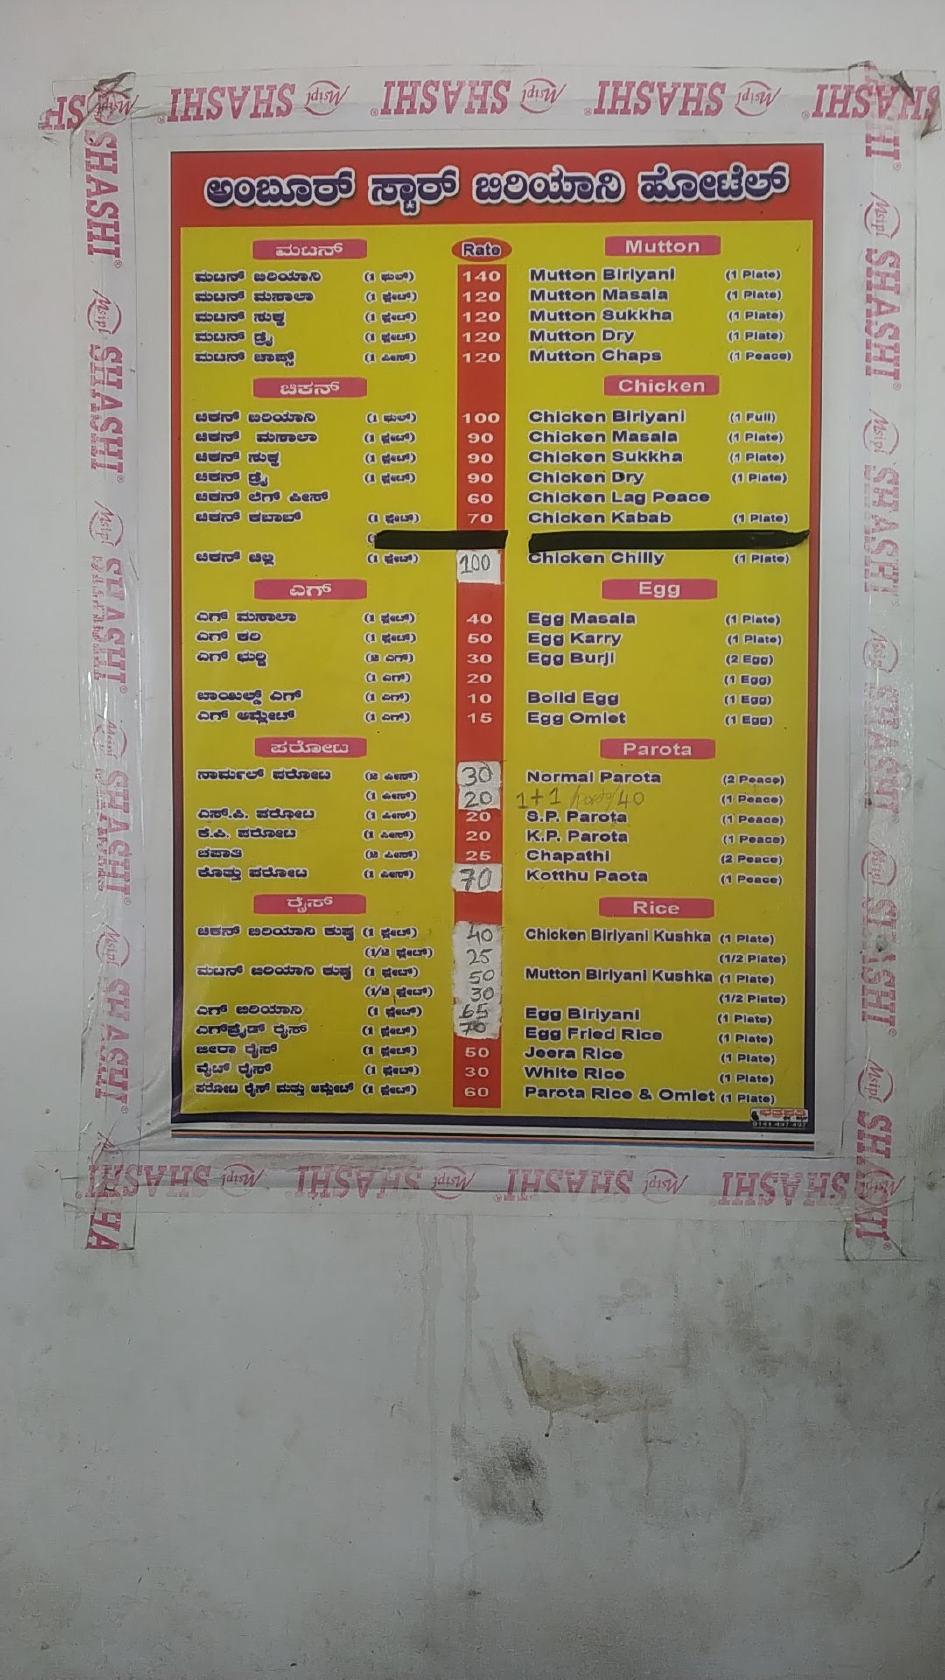 SHASHI SHASHI SHASHI SHASHI
ಅಂಬೂರ್ ಸ್ಟಾರ್ ಬಿರಿಯಾನಿ ಹೋಟೆಲ್
ಮಟನ್ Rate Mutton
ಮಟನ್ ಬಿರಿಯಾನಿ (1 ಫುಲ್) 140 Mutton Biriyani (1 Plate)
ಮಟನ್ ಮಸಾಲಾ (1 ಪ್ಲೇಟ್) 120 Mutton Masala (1 Plate)
ಮಟನ್ ಸುಕ್ಕ (1 ಪ್ಲೇಟ್) 120 Mutton Sukkha (1 Plate)
ಮಟನ್ ಡ್ರೈ (1 ಪ್ಲೇಟ್) 120 Mutton Dry (1 Plate)
ಮಟನ್ ಚಾಪ್ಸ್ (1 ಪೀಸ್) 120 Mutton Chaps (1 Peace)
ಚಿಕನ್ Chicken
ಚಿಕನ್ ಬಿರಿಯಾನಿ (1 ಫುಲ್) 100 Chicken Biriyani (1 Full)
ಚಿಕನ್ ಮಸಾಲಾ (1 ಪ್ಲೇಟ್) 90 Chicken Masala (1 Plate)
ಚಿಕನ್ ಸುಕ್ಕ (1 ಪ್ಲೇಟ್) 90 Chicken Sukkha (1 Plate)
ಚಿಕನ್ ಡ್ರೈ (1 ಪ್ಲೇಟ್) 90 Chicken Dry (1 Plate)
ಚಿಕನ್ ಲೆಗ್ ಪೀಸ್ 60 Chicken Lag Peace
ಚಿಕನ್ ಕಬಾಬ್ (1 ಪ್ಲೇಟ್) 70 Chicken Kabab (1 Plate)
ಚಿಕನ್ ಚಿಲ್ಲಿ (1 ಪ್ಲೇಟ್) 100 Chicken Chilly (1 Plate)
ಎಗ್ Egg
ಎಗ್ ಮಸಾಲಾ (1 ಪ್ಲೇಟ್) 40 Egg Masala (1 Plate)
ಎಗ್ ಕರಿ (1 ಪ್ಲೇಟ್) 50 Egg Karry (1 Plate)
ಎಗ್ ಭುರ್ಜಿ (2 ಎಗ್) 30 Egg Burji (2 Egg)
(1 ಎಗ್) 20 (1 Egg)
ಬಾಯಿಲ್ಡ್ ಎಗ್ (1 ಎಗ್) 10 Boild Egg (1 Egg)
ಎಗ್ ಆಮ್ಲೇಟ್ (1 ಎಗ್) 15 Egg Omlet (1 Egg)
ಪರೋಟ Parota
ನಾರ್ಮಲ್ ಪರೋಟ (2 ಪೀಸ್) 30 Normal Parota (2 Peace)
(1 ಪೀಸ್) 20 1+1 40 (1 Peace)
ಎಸ್.ಪಿ. ಪರೋಟ (1 ಪೀಸ್) 20 S.P. Parota (1 Peace)
ಕೆ.ಪಿ. ಪರೋಟ (1 ಪೀಸ್) 20 K.P. Parota (1 Peace)
ಚಪಾತಿ (2 ಪೀಸ್) 25 Chapathi (2 Peace)
ಕೊತ್ತು ಪರೋಟ (1 ಪೀಸ್) 70 Kotthu Paota (1 Peace)
ರೈಸ್ Rice
ಚಿಕನ್ ಬಿರಿಯಾನಿ ಕುಷ್ಕ (1 ಪ್ಲೇಟ್) 40 Chicken Biriyani Kushka (1 Plate)
(1/2 ಪ್ಲೇಟ್) 25 (1/2 Plate)
ಮಟನ್ ಬಿರಿಯಾನಿ ಕುಷ್ಕ (1 ಪ್ಲೇಟ್) 50 Mutton Biriyani Kushka (1 Plate)
(1/2 ಪ್ಲೇಟ್) 30 (1/2 Plate)
ಎಗ್ ಬಿರಿಯಾನಿ (1 ಪ್ಲೇಟ್) 65 Egg Biriyani (1 Plate)
ಎಗ್‌ಫ್ರೈಡ್ ರೈಸ್ (1 ಪ್ಲೇಟ್) 70 Egg Fried Rice (1 Plate)
ಜೀರಾ ರೈಸ್ (1 ಪ್ಲೇಟ್) 50 Jeera Rice (1 Plate)
ವೈಟ್ ರೈಸ್ (1 ಪ್ಲೇಟ್) 30 White Rice (1 Plate)
ಪರೋಟ ರೈಸ್ ಮತ್ತು ಆಮ್ಲೇಟ್ (1 ಪ್ಲೇಟ್) 60 Parota Rice & Omlet (1 Plate)
SHASHI SHASHI SHASHI SHASHI